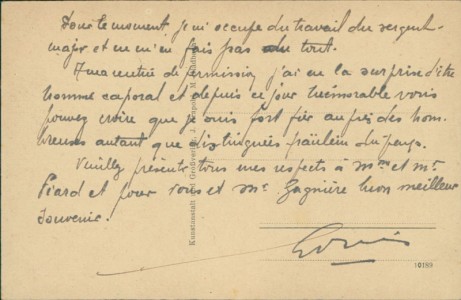 Pour le moment, je m'occupe du travail du sergent-
major et ne m'en fais pas du tout.
A ma rentrée de permission j'ai eu la surprise d'être
nommé caporal et depuis ce jour mémorable vous
pouvez croire que je suis fort fier auprès des nom-
breuses autant que distinguées fraülein du pays.
Veuillez présenter tous mes respects à Mme et Mr
Piard et pour vous et Mr Gagnière mon meilleur
souvenir.
Kunstanstalt und Großverlag, J.
10189